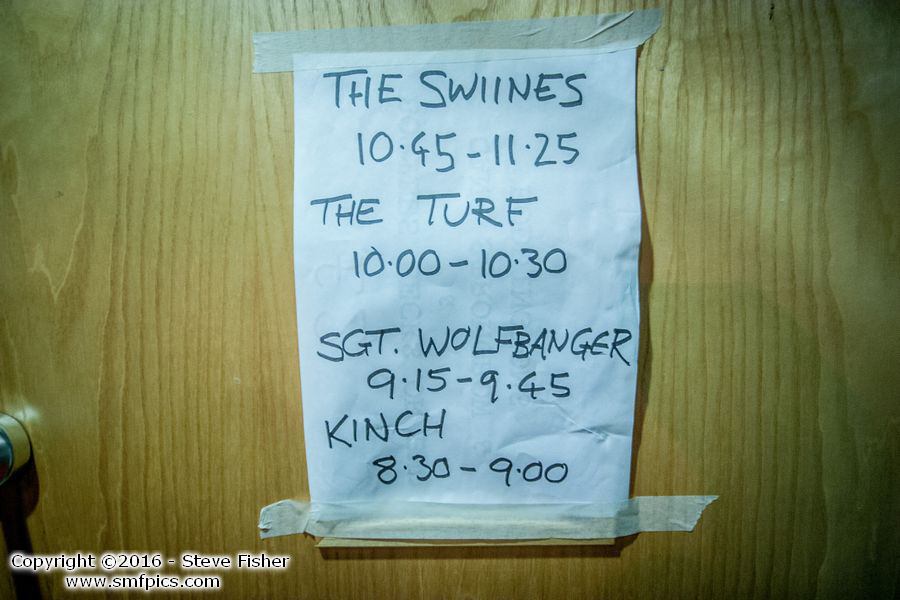 THE SWIINES
10.45-11.25
THE TURF
10.00-10.30
SGT. WOLFBANGER
9.15-9.45
KINCH
8.30-9.00
Copyright ©2016 - Steve Fisher
www.smfpics.com